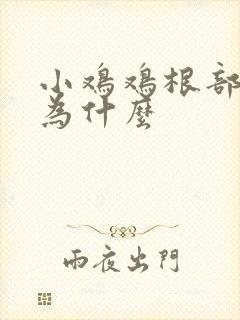 小鸡鸡根部
为什麼
雨夜出門